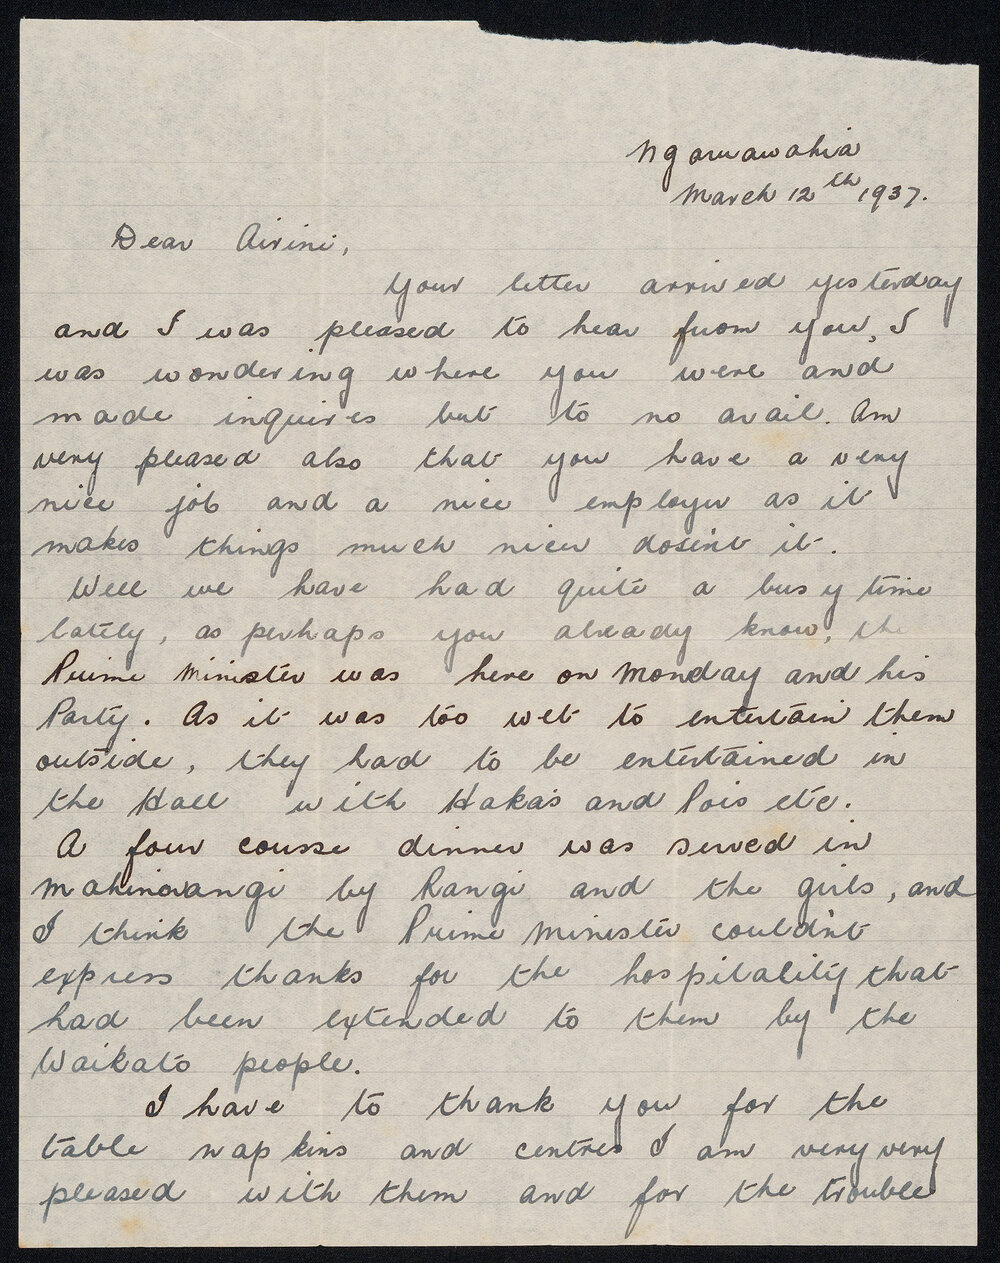 Ngaruawahia
March 12th 1937.
Dear Airini,
Your letter arrived yesterday
and I was pleased to hear from you, I
was wondering where you were and
made inquires but to no avail. Am
very pleased also that you have a very
nice job and a nice employer as it
makes things much nicer dosent it.
Well we have had quite a busy time
lately, as perhaps you already know, the
Prime Minister was here on Monday and his
Party. As it was too wet to entertain them
outside, they had to be entertained in
the Hall with Hakas and Pois etc.
A four course dinner was served in
Mahinarangi by Rangi and the girls, and
I think the Prime Minister couldn't
express thanks for the hospitality that
had been extended to them by the
Waikato people.
I have to thank you for the
table napkins and centres I am very very
pleased with them and for the trouble